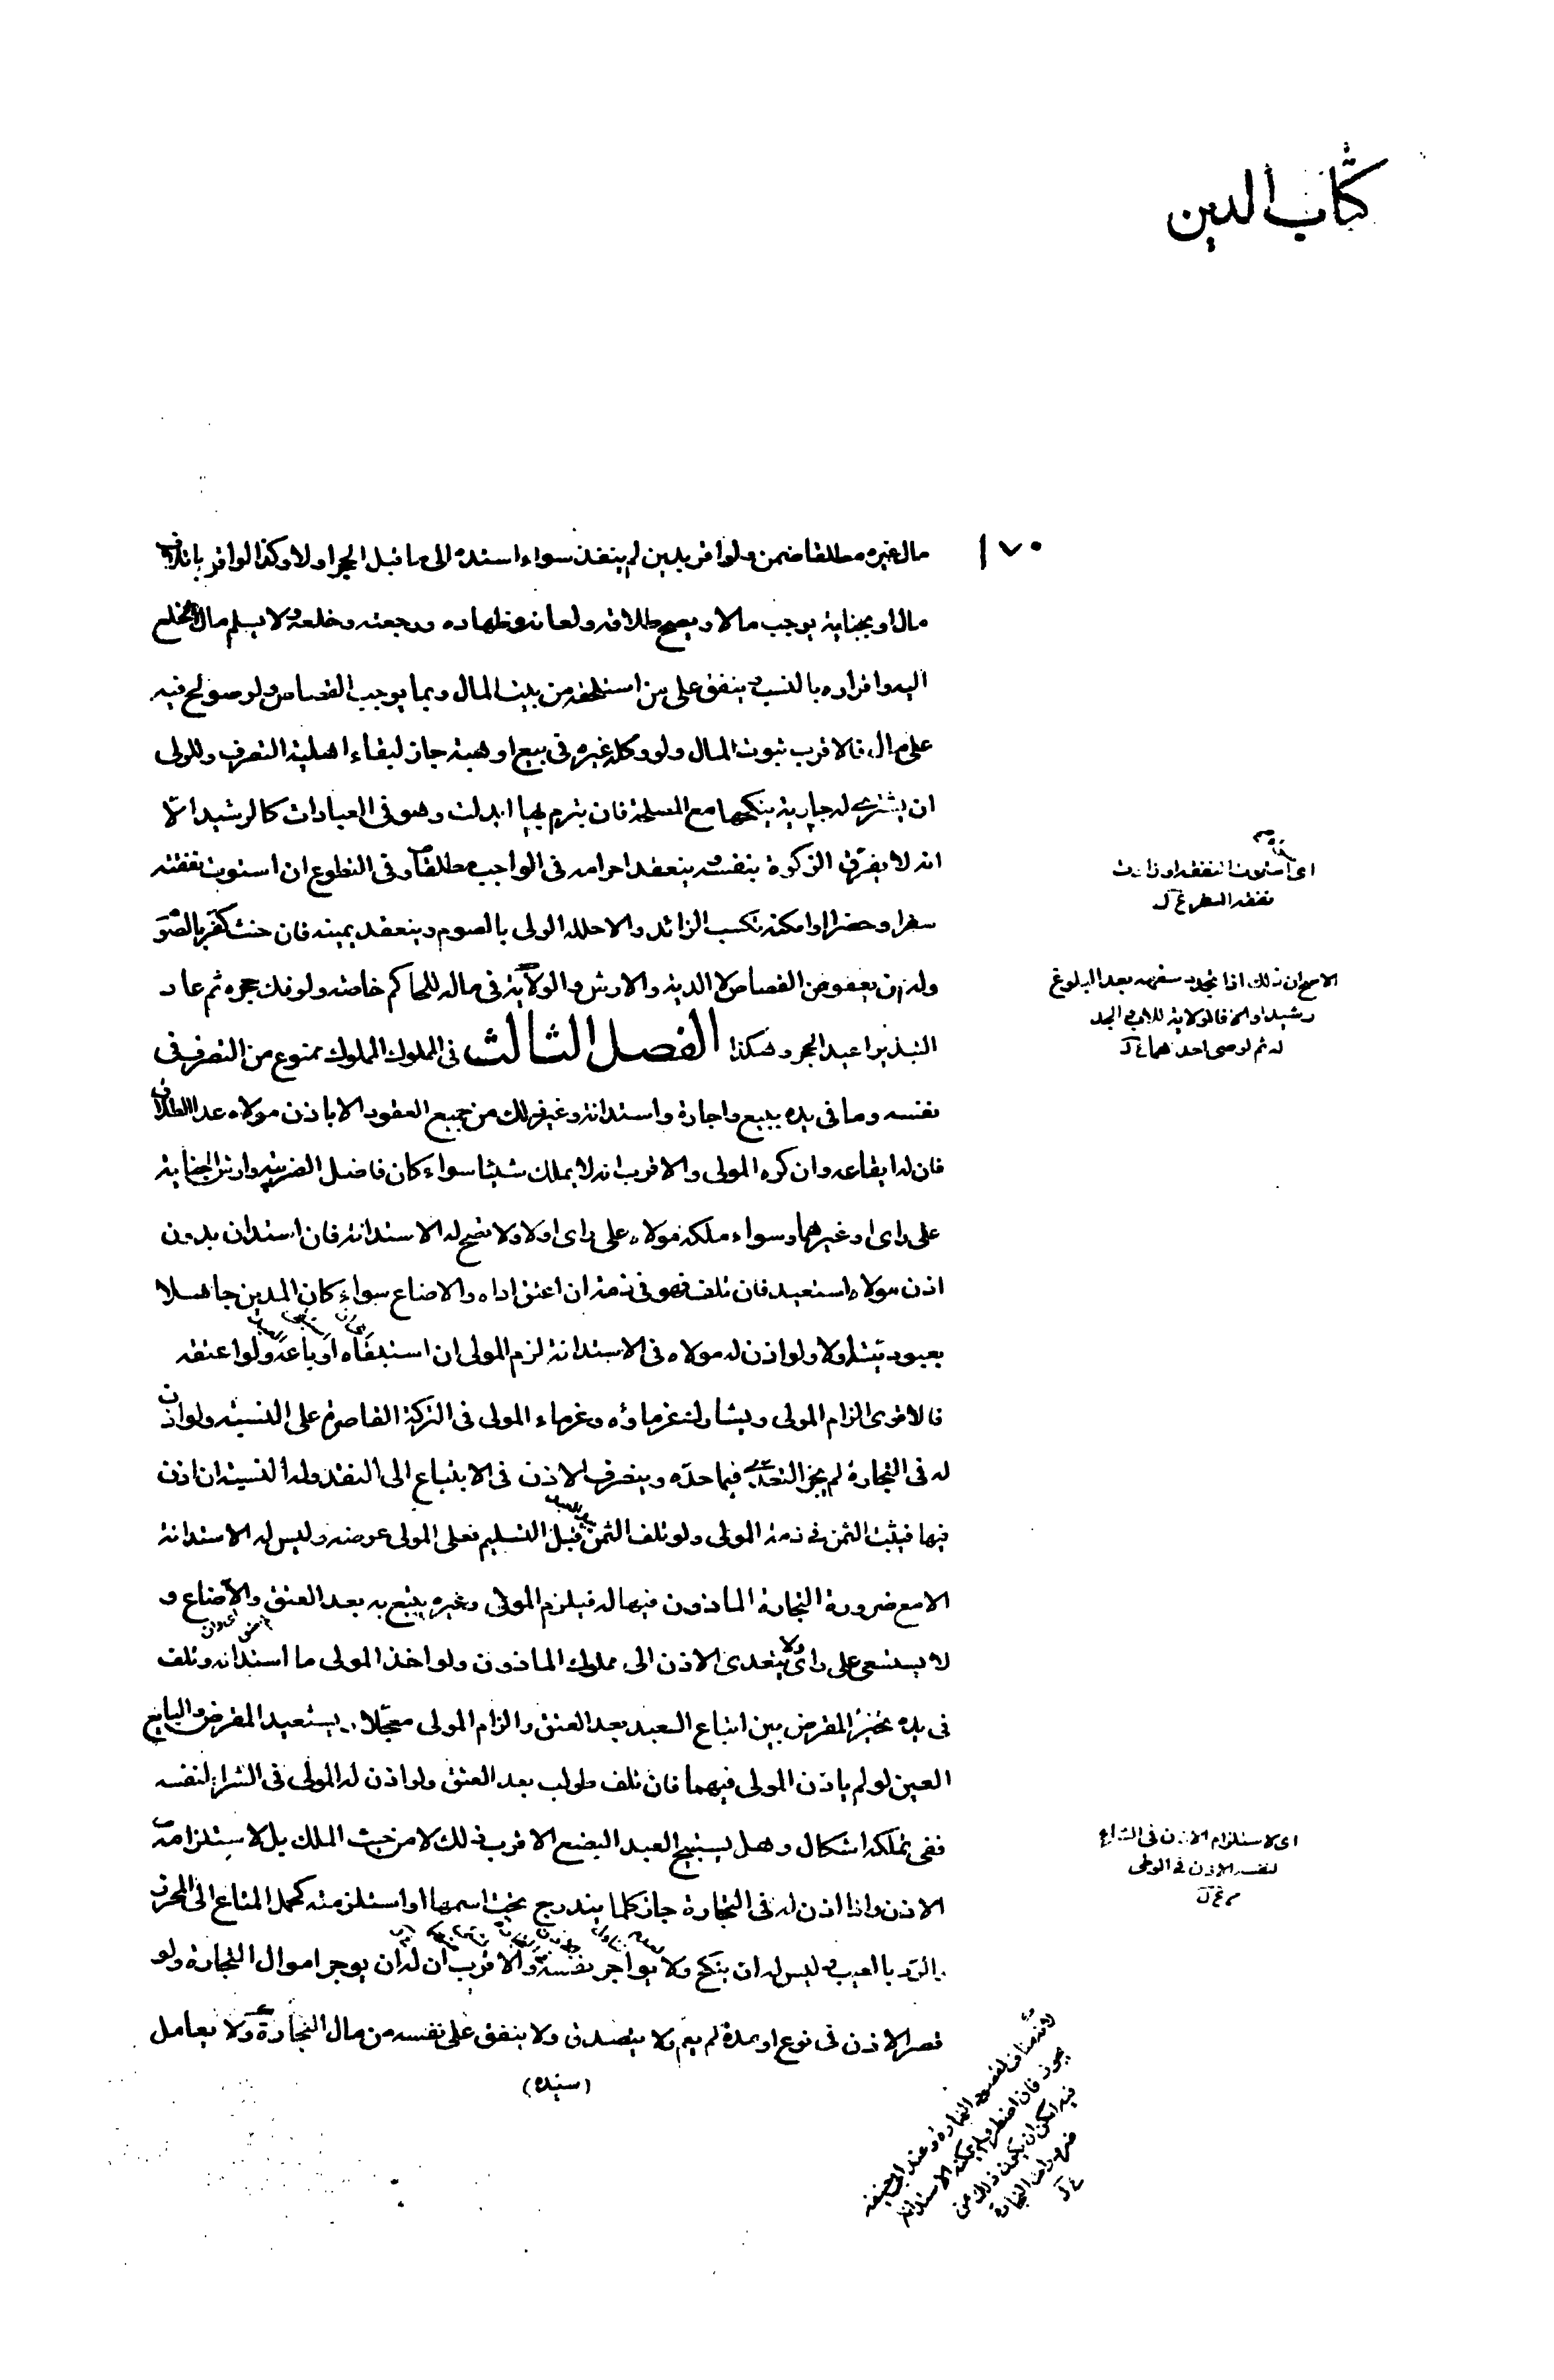 كتاب الدين
١٧٠
مال غيره مطلقا ضمن ولو اقر بدين لم ينفذ سواء اسنده الى ما قبل الحجر اولا وكذا لو اقر باتلاف
مال او بجناية يوجب مالا ويصح طلاقه ولعانه وظهاره ورجعته وخلعه ولا يسلم مال الخلع
اليه واقراره بالنسب وينفق على من استلحقه من بيت المال وبما يوجب القصاص ولو صولح فيه
على مال فالاقرب ثبوت المال ولو وكله غيره في بيع او هبة جاز لبقاء اهلية التصرف وللولى
ان يشترى له جارية ينكحها مع المصلحة فان تبرم بها ابدلت وهو في العبادات كالرشيد الا
انه لا يفرق الزكوة بنفسه وينعقد احرامه في الواجب مطلقا وفي التطوع ان استوت نفقته
سفرا وحضرا او امكنه تكسب الزائد والا حلله الولى بالصوم وينعقد يمينه فان حنث كفر بالصوم
وله ان يعفو عن القصاص لا الدية والارش والولاية في ماله للحاكم خاصة ولو فك حجره ثم عاد
التبذير اعيد الحجر وهكذا الفصل الثالث في المملوك المملوك ممنوع من التصرف في
نفسه وما في يده ببيع واجارة واستدانة وغير ذلك من جميع العقود الا باذن مولاه عدا الطلاق
فان له ايقاعه وان كره المولى والاقرب انه لا يملك شيئا سواء كان فاضل الضريبة وارش الجناية
على راى او غيرهما وسواء ملكه مولاه على راى اولا ولا تصح له الاستدانة فان استدان بدون
اذن مولاه استعيد فان تلف فهو في ذمته ان اعتق اداه والا ضاع سواء كان المدين جاهلا
بعبوديته اولا ولو اذن له مولاه في الاستدانة لزم المولى ان استبقاه او باعه ولو اعتقه
فالاقوى الزام المولى ويشارك غرماؤه وغرماء المولى في التركة القاصرة على النسبة ولو اذن
له في التجارة لم يجز التعدى فيما حده وينصرف الاذن في الابتياع الى النقد وله النسيئة ان اذن
فيها فيثبت الثمن في ذمة المولى ولو تلف الثمن قبل التسليم فعلى المولى عوضه وليس له الاستدانة
الا مع ضرورة التجارة الماذون فيها له فيلزم المولى وغيره يتبع به بعد العتق والا ضاع و
لا يستسعى على راى ولا يتعدى الاذن الى مملوك الماذون ولو اخذ المولى ما استدانه وتلف
في يده تخير المقرض بين اتباع العبد بعد العتق والزام المولى معجلا ويستعيد المقرض والبايع
العين لو لم ياذن المولى فيهما فان تلف طولب بعد العتق ولو اذن له المولى في الشراء لنفسه
ففي تملكه اشكال وهل يستبيح العبد البضع الاقرب ذلك لا من حيث الملك بل لاستلزامه
الاذن واذا اذن له في التجارة جاز كلما يندرج تحت اسمها او استلزمته كحمل المتاع الى المحرز
والرد بالعيب وليس له ان ينكح ولا يواجر نفسه والاقرب ان له ان يوجر اموال التجارة ولو
قصر الاذن في نوع او مدة لم يعم ولا يتصدق ولا ينفق على نفسه من مال التجارة ولا يعامل
(سيده)
اى استوت النفقة او زادت
نفقة السفر
الاصح ان ذلك اذا تجدد سفهه بعد البلوغ
رشيدا والا فالولاية للاب والجد
له ثم لوصى احدهما
اى لاستلزام الاذن في الشراء
لنفسه الاذن في الوطى